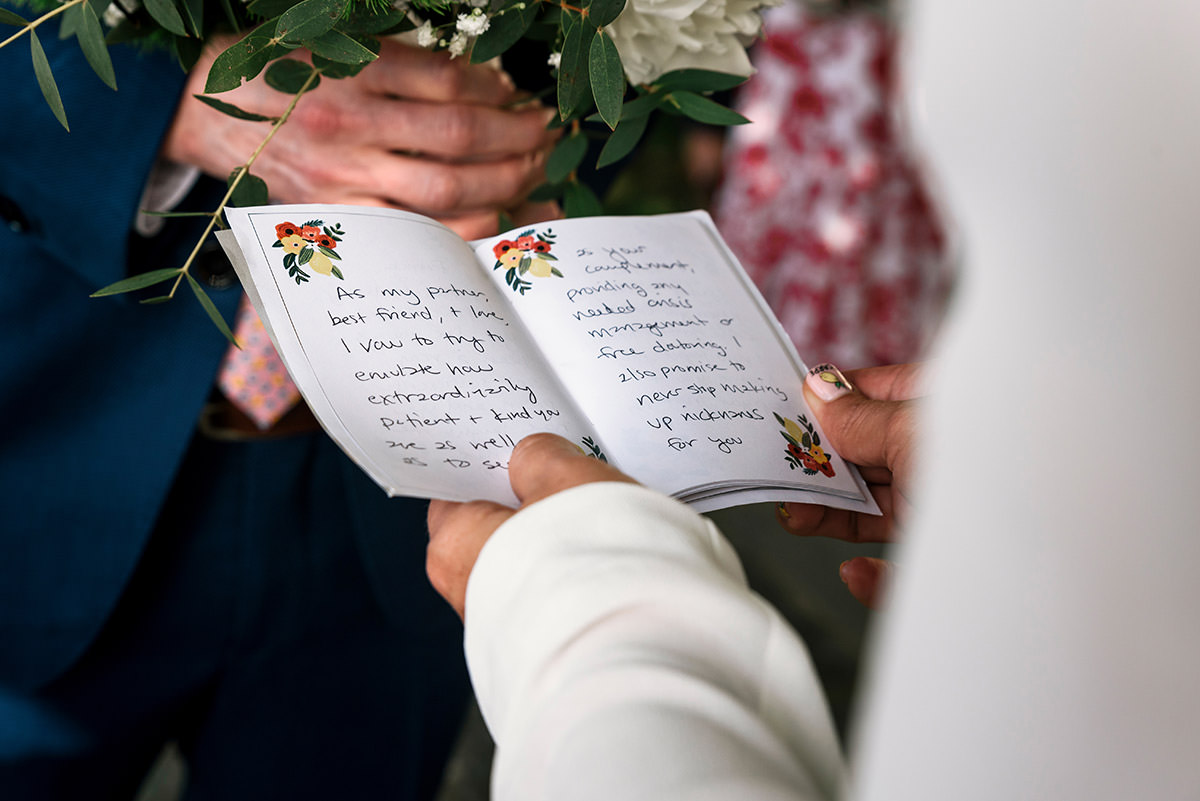 As my partner,
best friend, + love,
I vow to try to
emulate how
extraordinarily
patient + kind you
are as well
as to se
as your
complement,
providing any
needed crisis
management or
free doctoring. I
also promise to
never stop making
up nicknames
for you